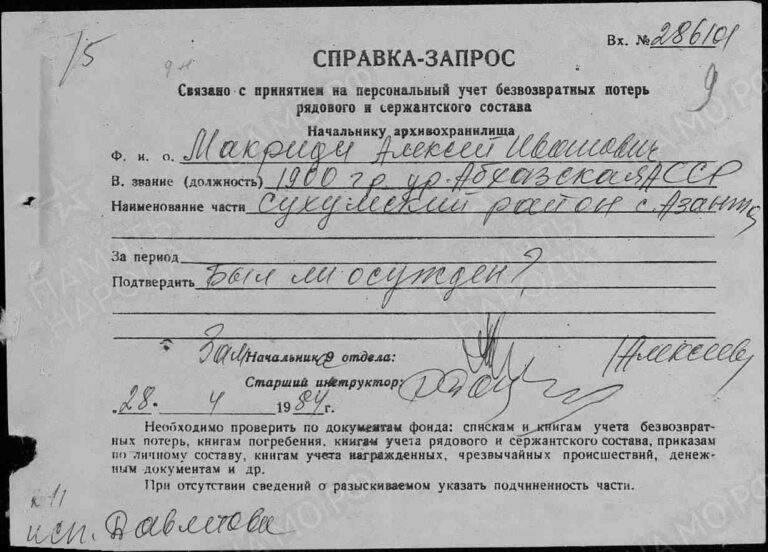 75
Вх. № 286101
СПРАВКА-ЗАПРОС
9
Связано с принятием на персональный учет безвозвратных потерь
рядового и сержантского состава
Начальнику архивохранилища
Ф. и. о. Макриди Алексей Иванович
В. звание (должность) 1900 гр. ур. Абхазская АССР
Наименование части Сухумский район с. Азанта
За период
Подтвердить Был ли осужден?
Зам Начальника отдела: Алексеев
Старший инструктор:
28. 4 1984 г.
Необходимо проверить по документам фонда: спискам и книгам учета безвозврат-
ных потерь, книгам погребения, книгам учета рядового и сержантского состава, приказам
по личному составу, книгам учета награжденных, чрезвычайных происшествий, денеж-
ным документам и др.
При отсутствии сведений о разыскиваемом указать подчиненность части.
к 11
исп. Давлетова